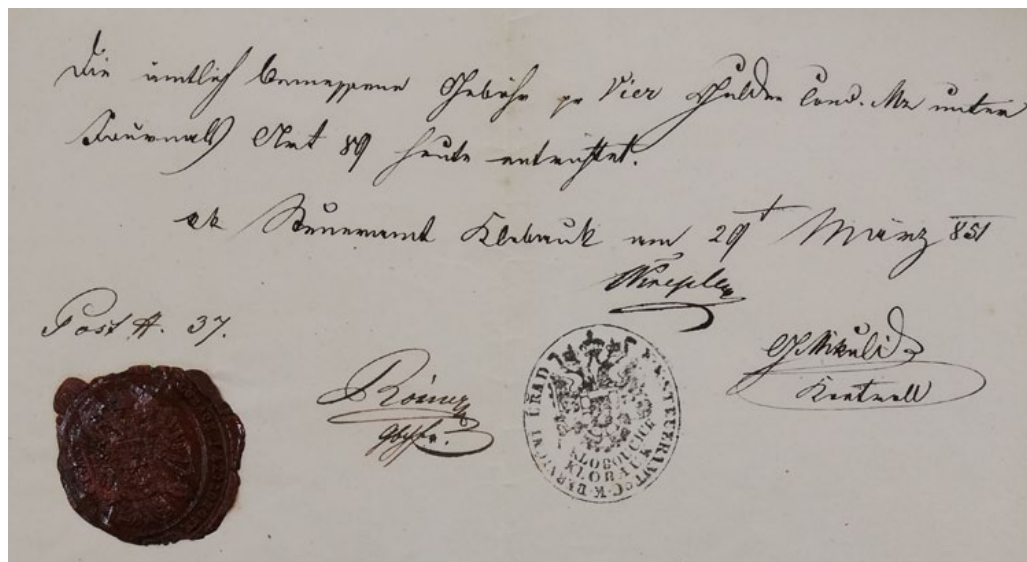 Die ämtlich bemessene Gebühr pr Vier Gulden Conv. Mz unter
Journals Art 89 heute entrichtet.
kk Steueramt Klobauk am 29t März 851
Post #. 37.
Römer
K. K. STEUERAMT
C. K. BERNIČNI URAD
KLOBOUCHE
KLOBAUK
Kontroll